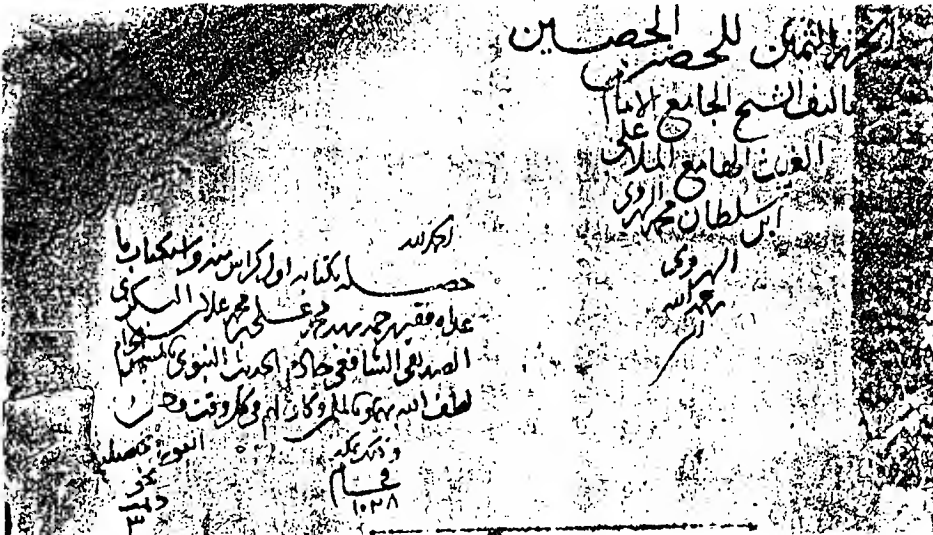 الحرز الثمين للحصن الحصين
تأليف الشيخ الجامع الامام
الغيث الهامع الملا علي
ابن سلطان محمد الهروي
الهروي
رحمه الله
الحمد لله
حصله بكتابة اول كراس منه واستكتاب ما
عداه فقير رحمة ربه محمد علي بن محمد علان البكري
الصديقي الشافعي خادم الحديث النبوي بالمسجد الحرام
لطف الله به وبالمسلمين وكان لهم في كل وقت وحين
وذلك بمكة
في عام
١٠٣٨